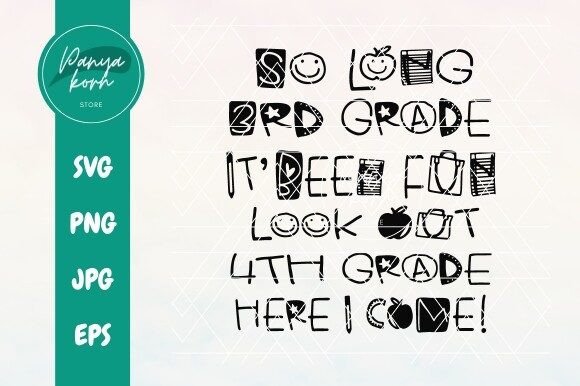 Panya
korn
STORE
SVG
PNG
JPG
EPS
SO LONG
3RD GRADE
IT'BEEN FUN
LOOK OUT
4TH GRADE
HERE I COME!